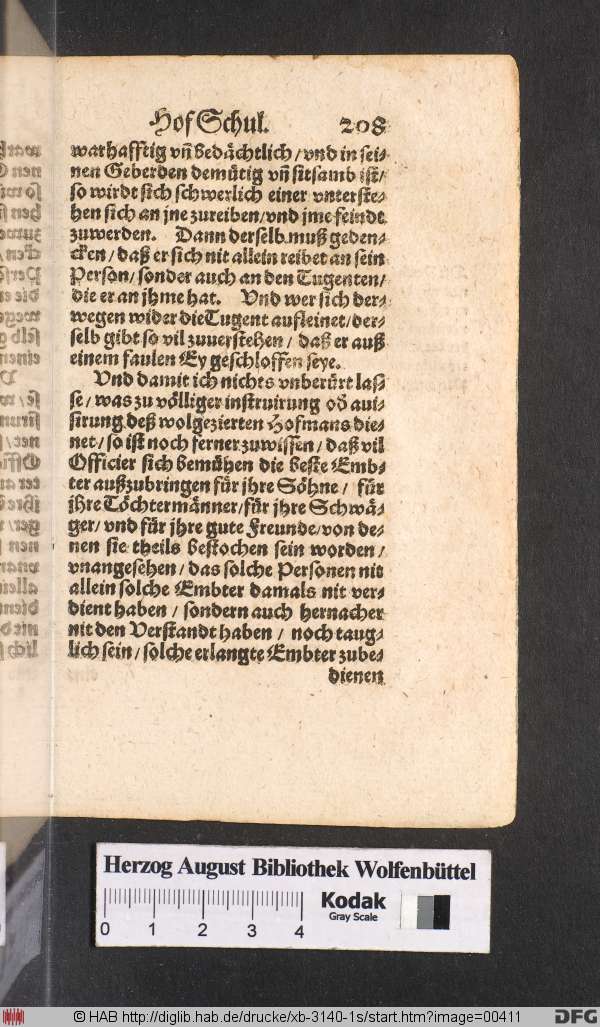 Hof Schul. 208
warhafftig vñ bedächtlich / vnd in sei⸗
nen Geberden demütig vñ sitsamb ist /
so wirdt sich schwerlich einer vnterste⸗
hen sich an jne zureiben / vnd jme feindt
zuwerden. Dann derselb muß geden⸗
cken / daß er sich nit allein reibet an sein
Person / sonder auch an den Tugenten /
die er an jhme hat. Vnd wer sich der⸗
wegen wider die Tugent aufleinet / der⸗
selb gibt so vil zuuerstehen / daß er auß
einem faulen Ey geschloffen seye.
Vnd damit ich nichts vnberürt las⸗
se / was zu völliger instruirung od̃ aui⸗
sirung deß wolgezierten Hofmans die⸗
net / so ist noch ferner zuwissen / daß vil
Officier sich bemühen die beste Emb⸗
ter außzubringen für jhre Söhne / für
jhre Töchtermänner / für jhre Schwä⸗
ger / vnd für jhre gute Freunde / von de⸗
nen sie theils bestochen sein worden /
vnangesehen / das solche Personen nit
allein solche Embter damals nit ver⸗
dient haben / sondern auch hernacher
nit den Verstandt haben / noch taug⸗
lich sein / solche erlangte Embter zube⸗
dienen
Herzog August Bibliothek Wolfenbüttel
Kodak
Gray Scale
0 1 2 3 4
© HAB http://diglib.hab.de/drucke/xb-3140-1s/start.htm?image=00411
DFG